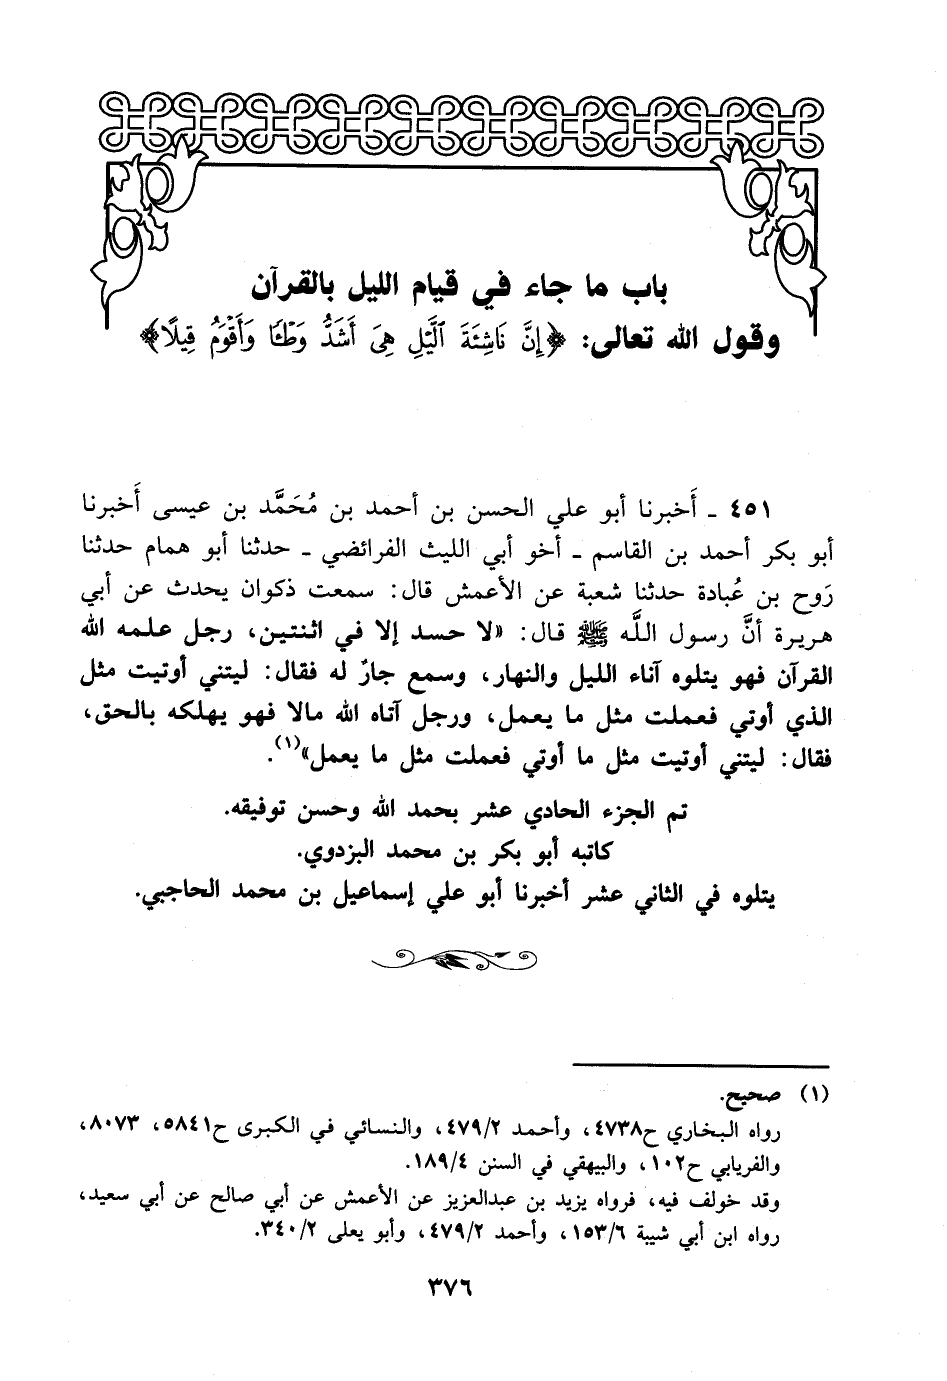 باب ما جاء في قيام الليل بالقرآن
وقول الله تعالى: ﴿إِنَّ نَاشِئَةَ ٱلَّيْلِ هِىَ أَشَدُّ وَطْـًٔا وَأَقْوَمُ قِيلًا﴾
٤٥١ ـ أَخبرنا أبو علي الحسن بن أحمد بن مُحَمَّد بن عيسى أَخبرنا
أبو بكر أحمد بن القاسم ـ أخو أبي الليث الفرائضي ـ حدثنا أبو همام حدثنا
رَوح بن عُبادة حدثنا شعبة عن الأعمش قال: سمعت ذكوان يحدث عن أبي
هريرة أنَّ رسول اللَّه ﷺ قال: «لا حسد إلا في اثنتين، رجل علمه الله
القرآن فهو يتلوه آناء الليل والنهار، وسمع جارٌ له فقال: ليتني أوتيت مثل
الذي أوتي فعملت مثل ما يعمل، ورجل آتاه الله مالا فهو يهلكه بالحق،
فقال: ليتني أوتيت مثل ما أوتي فعملت مثل ما يعمل»(١).
تم الجزء الحادي عشر بحمد الله وحسن توفيقه.
كاتبه أبو بكر بن محمد البزدوي.
يتلوه في الثاني عشر أخبرنا أبو علي إسماعيل بن محمد الحاجبي.
(١) صحيح.
رواه البخاري ح٤٧٣٨، وأحمد ٤٧٩/٢، والنسائي في الكبرى ح٥٨٤١، ٨٠٧٣،
والفريابي ح١٠٢، والبيهقي في السنن ١٨٩/٤.
وقد خولف فيه، فرواه يزيد بن عبدالعزيز عن الأعمش عن أبي صالح عن أبي سعيد،
رواه ابن أبي شيبة ١٥٣/٦، وأحمد ٤٧٩/٢، وأبو يعلى ٣٤٠/٢.
٣٧٦